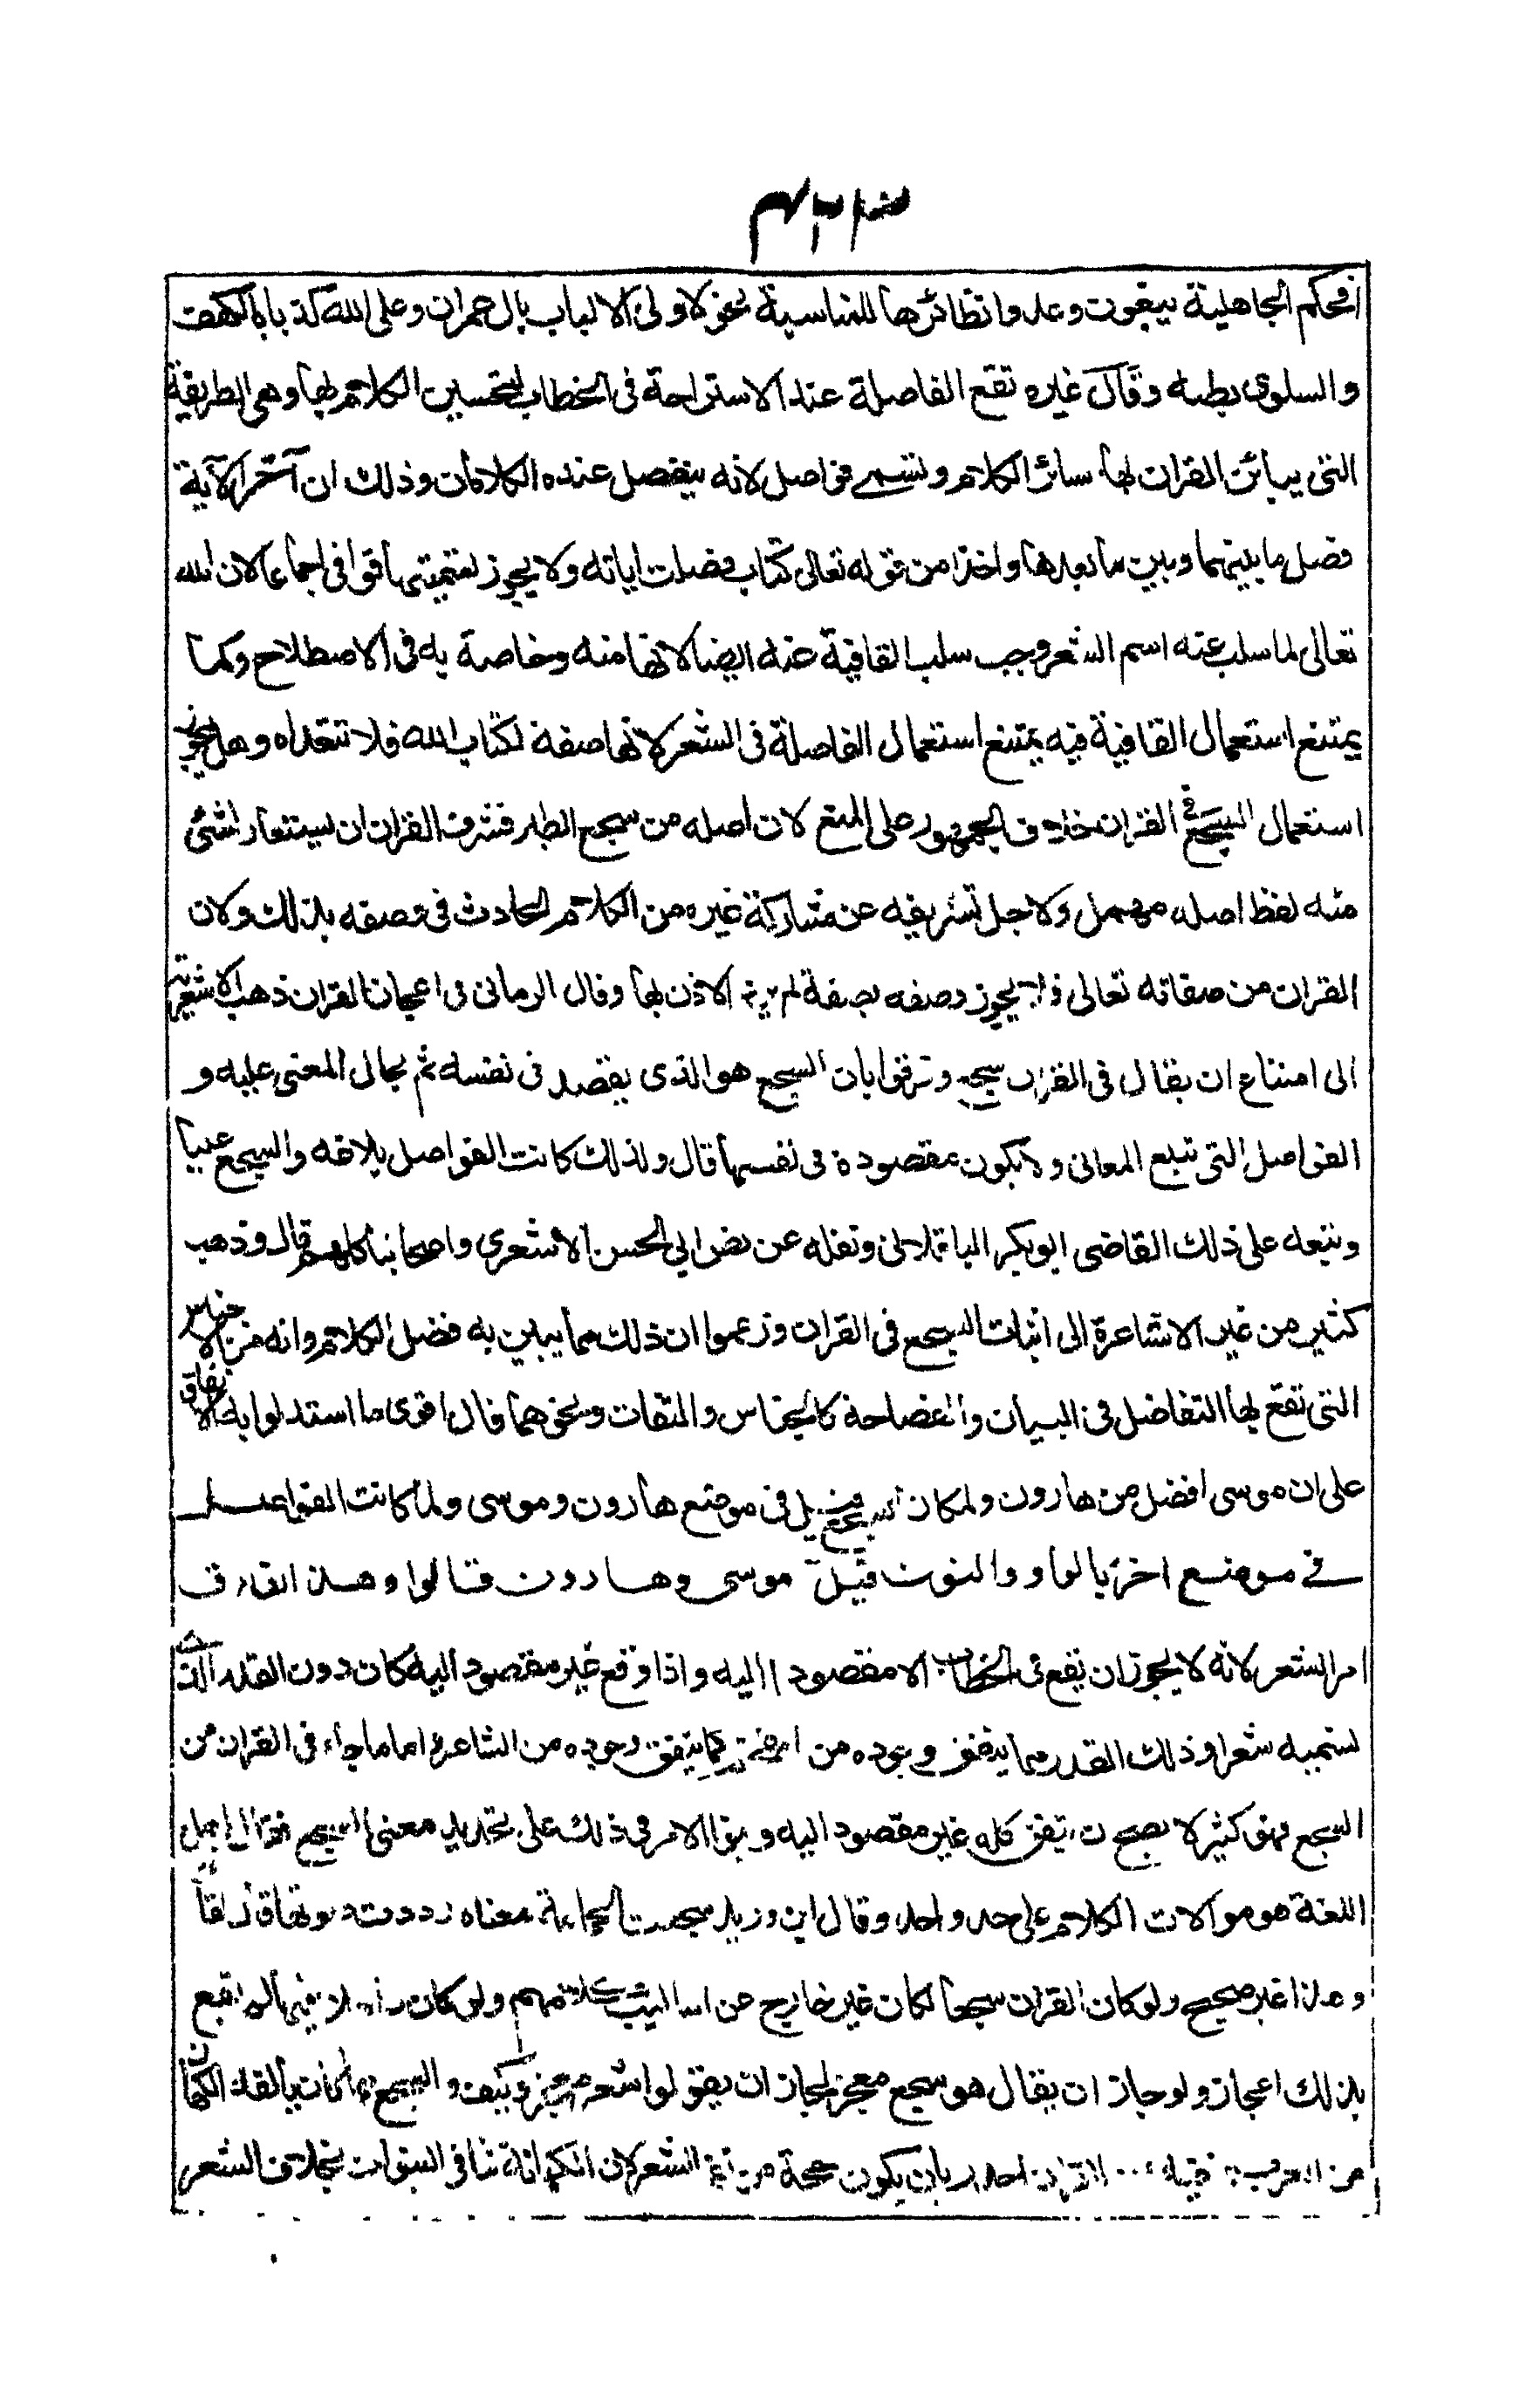 افحكم الجاهلية يبغون وعدوا نظائرها للمناسبة نحو لاولى الالباب بال عمران وعلى الله كذبا بالكهف
والسلوى بطه وقال غيره تقع الفاصلة عند الاستراحة فى الخطاب لتحسين الكلام بها وهى الطريقة
التى يباين القران بها سائر الكلام وتسمى فواصل لانه ينفصل عنده الكلامان وذلك ان آخر الآية
فصل ما بينها وبين ما بعدها واخذا من قوله تعالى كتاب فصلت اياته ولا يجوز تسميتها قوافى اجماعا لان الله
تعالى لما سلب عنه اسم الشعر وجب سلب القافية عنه ايضا لانها منه وخاصة به فى الاصطلاح وكما
يمتنع استعمال القافية فيه يمتنع استعمال الفاصلة فى الشعر لانها صفة لكتاب الله فلا تتعداه وهل يجوز
استعمال السجع فى القران خلاف الجمهور على المنع لان اصله من سجع الطير فشرف القران ان يستعار لشئ
منه لفظ اصله مهمل ولاجل تشريفه عن مشاركة غيره من الكلام الحادث فى وصفه بذلك ولان
القران من صفاته تعالى فلا يجوز وصفه بصفة لم يرد الاذن بها وقال الرمانى فى اعجاز القران ذهب الاشعرية
الى امتناع ان يقال فى القران سجع وفرقوا بان السجع هو الذى يقصد فى نفسه ثم يحال المعنى عليه و
الفواصل التى تتبع المعانى ولا تكون مقصودة فى نفسها قال ولذلك كانت الفواصل بلاغة والسجع عيبا
وتبعه على ذلك القاضى ابو بكر الباقلانى ونقله عن نص ابي الحسن الاشعرى واصحابنا كلهم قال وذهب
كثير من غير الاشاعرة الى اثبات السجع فى القران وزعموا ان ذلك مما يبين به فضل الكلام وانه من الاجناس
التى تقع بها التفاضل فى البيان والفصاحة كالجناس والتفات ونحوهما قال اقوى ما استدلوا به الاتفاق
على ان موسى افضل من هارون ولمكان السجع قيل فى موضع هارون وموسى ولما كانت الفواصل
فى موضع اخر بالواو والنون قيل موسى وهارون قالوا وهذا يفارق
امر الشعر لانه لا يجوز ان يقع فى الخطاب الا مقصودا اليه واذا وقع غير مقصود اليه كان دون القدر الذى
نسميه شعرا وذلك القدر مما يتفق وجوده من كما يتفق وجوده من الشاعر واما ما جاء فى القران من
السجع فهو كثير لا يصح ان يتفق كله غير مقصود اليه وبنوا الامر فى ذلك على تحديد معنى السجع فقال اهل
اللغة هو موالات الكلام على حد واحد وقال ابن دريد سجعت الحمامة معناه رددت صوتها قال القاضى
وهذا غير صحيح ولو كان القران سجعا لكان غير خارج عن اساليب كلامهم ولو كان داخلا فيها لم يقع
بذلك اعجاز ولو جاز ان يقال هو سجع معجز لجاز ان يقولوا شعر معجز وكيف والسجع مما كانت يالفه الكهان
من العرب ونفيه من القران اجدر بان يكون حجة من نفى الشعر لان الكهانة تنافى النبوات بخلاف الشعر